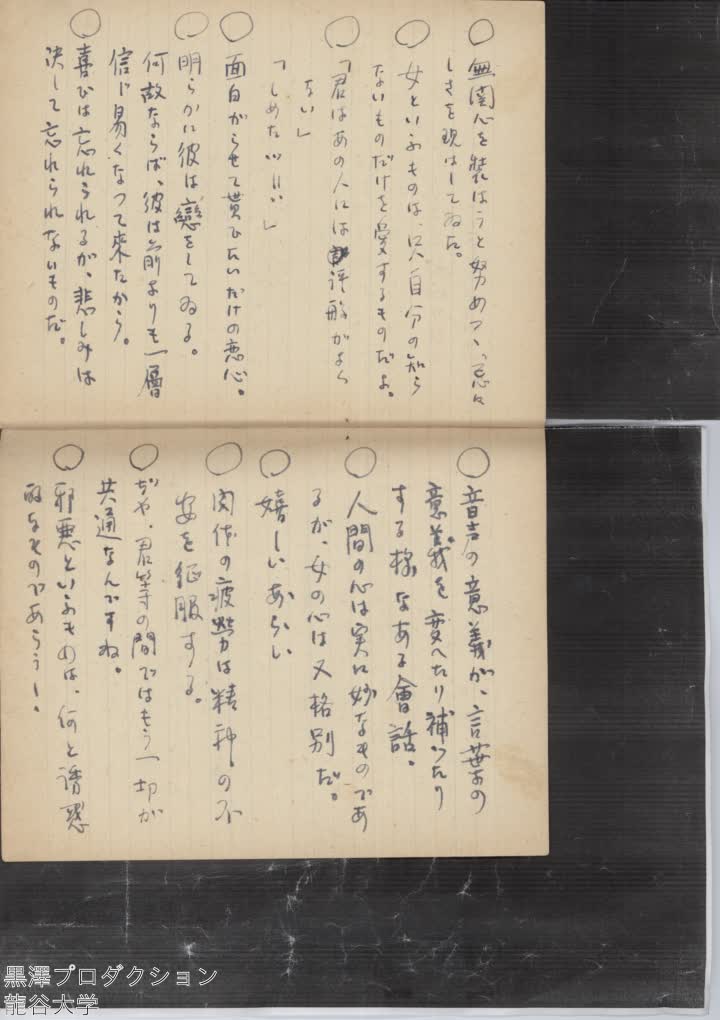 ○無関心を装はうと努めつゝ、忌々
しさを現はしてゐた。
○女といふものは、只自分の知ら
ないものだけを愛するものだよ。
○「君はあの人には評判がよく
ない」
「しめたッ!!」
○面白がらせて貰ひたいだけの恋心。
○明らかに彼は戀をしてゐる。
何故ならば、彼は前よりも一層
信じ易くなつて來たから。
○喜びは忘れられるが、悲しみは
決して忘れられないものだ。
○音声の意義が、言葉の
意義を変へたり補つたり
する様なある會話。
○人間の心は実に妙なものであ
るが、女の心は又格別だ。
○嬉しいあらい
○肉体の疲労は精神の不
安を征服する。
○ぢや、君等の間ではもう一切が
共通なんですね。
○邪悪といふものは、何と誘惑
的なものであらう!。
黒澤プロダクション
龍谷大学